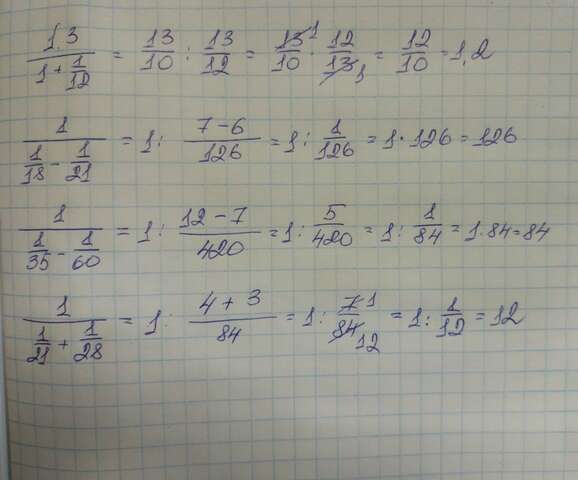 1,3/(1 + 1/12) = 13/10 : 13/12 = 13/10 · 12/13 = 12/10 = 1,2
1/(1/18 - 1/21) = 1 : (7-6)/126 = 1 : 1/126 = 1 · 126 = 126
1/(1/35 - 1/60) = 1 : (12-7)/420 = 1 : 5/420 = 1 : 1/84 = 1·84 = 84
1/(1/21 + 1/28) = 1 : (4+3)/84 = 1 : 7/84 = 1 : 1/12 = 12